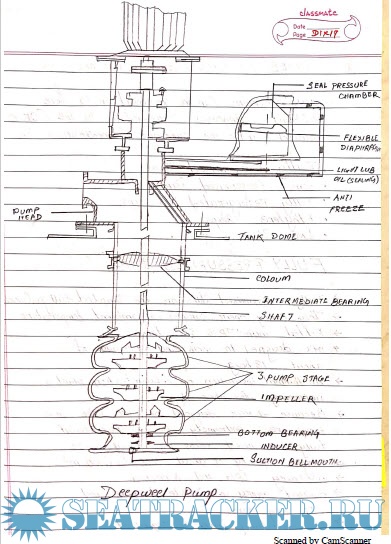 classmate
Date
Page D1X17
SEAL PRESSURE
CHAMBER
FLEXIBLE
DIAPHRAGM
LIGHT LUB
OIL (SEALING)
ANTI
FREEZE
PUMP
HEAD
TANK DOME
COLOUM
INTERMEDIATE BEARING
SHAFT
3. PUMP STAGE
IMPELLER
BOTTOM BEARING
INDUCER
SUCTION BELLMOUTH
Deepweel Pump.
SEATRACKER.RU
Scanned by CamScanner